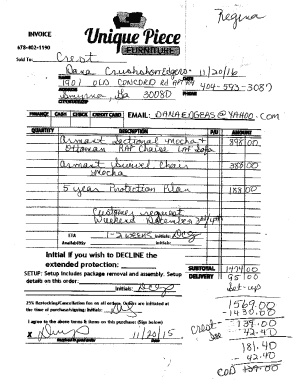 Regina
INVOICE
Unique Piece
FURNITURE
678-402-1190
Sold To: Crest
Dana Crushshon Edgers 11/20/16
NAME
1901 Old Concord Rd Apt
404-593-3087
ADDRESS
PHONE
Smyrna, Ga 30080
CITY/STATE/ZIP
FINANCE CASH CHECK CREDIT CARD EMAIL: DANAEDGEAS@YAHOO.COM
QUANTITY DESCRIPTION P/U AMOUNT
Armart Sectional mocha + 898.00
Ottoman RAF Chaise LAF Sofa
Armart Swivel Chair 388.00
mocha
5 year Protection Plan 188.00
Customer request
Weekend November
ETA 1-2 weeks Initials: DCE
Availability Initials:
Initial if you wish to DECLINE the
extended protection:
SUBTOTAL 1474.00
SETUP: Setup includes package removal and assembly. Setup
DELIVERY 95.00
details on this order:
Set-up
Initials: DCE
1569.00
25% Restocking/Cancellation fee on all orders. Orders are initiated at
-1430.00
the time of purchase/signing: Initials:
139.00
Crest
42.40
I agree to the above terms & items on this purchase (Sign below)
181.40
X 11/20/2015
-42.40
COD 139.00